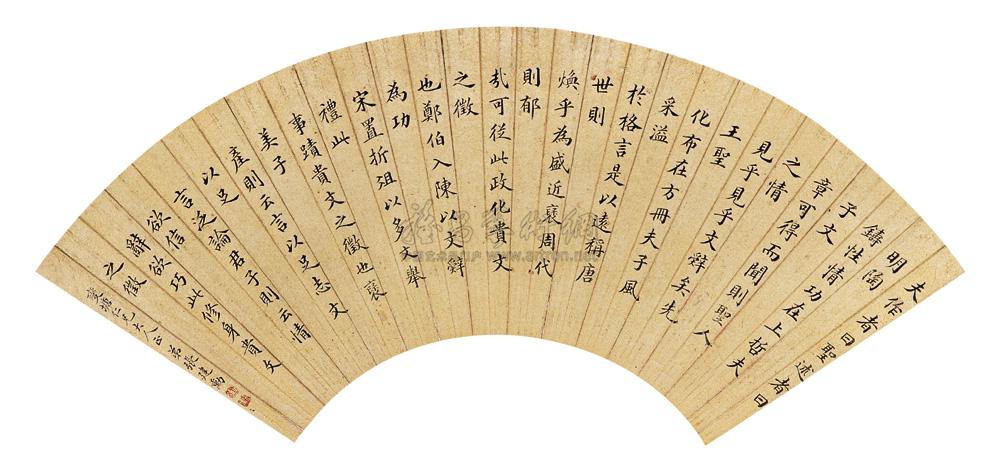 夫作者曰聖述者曰
明陶
鑄性情功在上哲夫
子文
章可得而聞則聖人
之情
見乎見乎文辭矣先
王聖
化布在方冊夫子風
采溢
於格言是以遠稱唐
世則
煥乎為盛近褒周代
則郁
哉可從此政化貴文
之徵
也鄭伯入陳以文辭
為功
宋置折俎以多舉
禮此
事蹟貴文之徵也褒
美子
產則云言以足志文
以足
言泛論君子則云情
欲信
辭欲巧此修身貴文
之徵
仁兄大人正弟張建勳